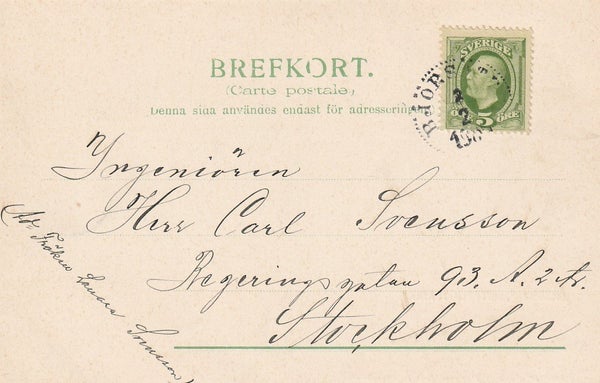 BREFKORT.
(Carte postale)
Denna sida användes endast för adresseringen
SVERIGE
5 ÖRE
2
Yngeniören
Herr Carl Svensson
Regeringsgatan 93. A. 2 tr.
Stockholm
Fröken Svensson